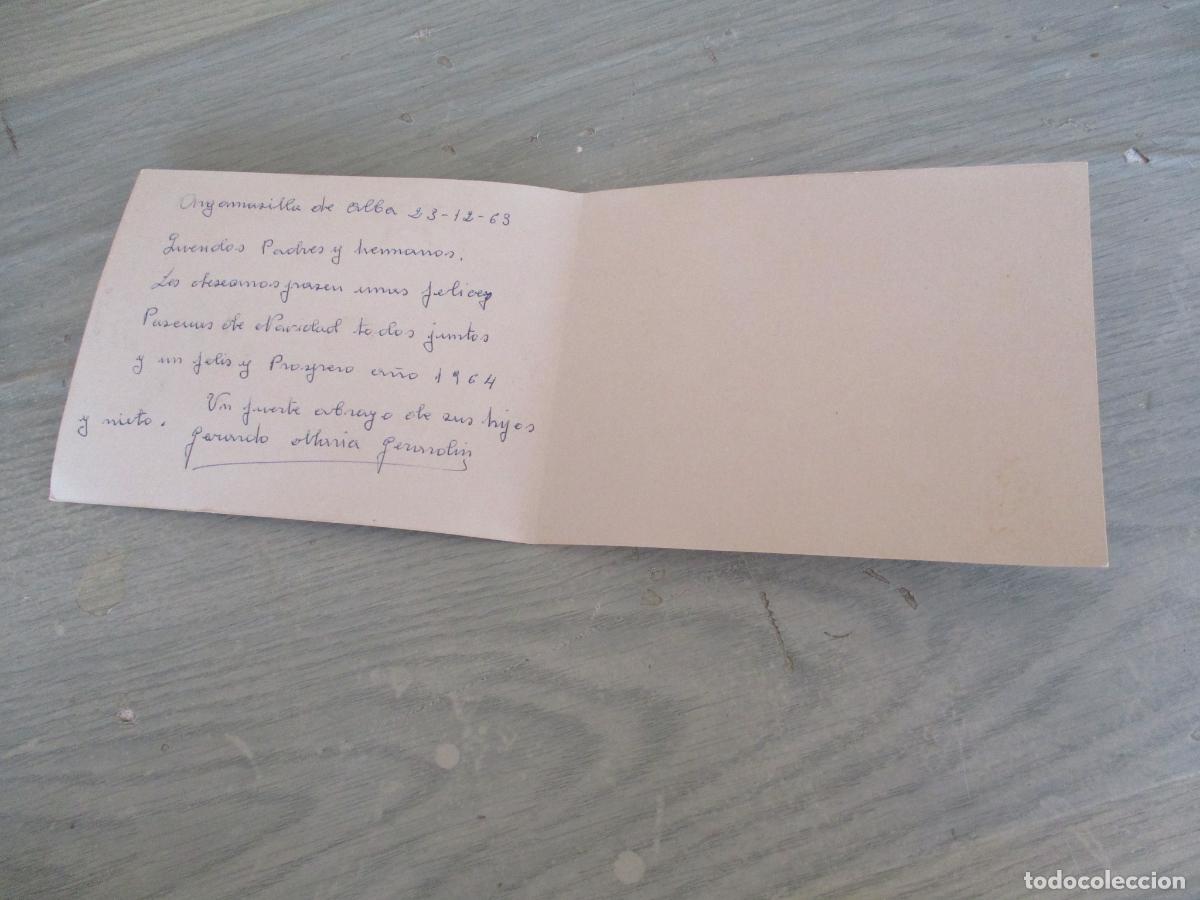 Argamasilla de Alba 23-12-63
Queridos Padres y hermanos.
Les deseamos pasen unas felices
Pascuas de Navidad todos juntos
y un felis y Prospero año 1964
Un fuerte abrazo de sus hijos
y nieto.
Gerardo Maria Gerardin
todocoleccion